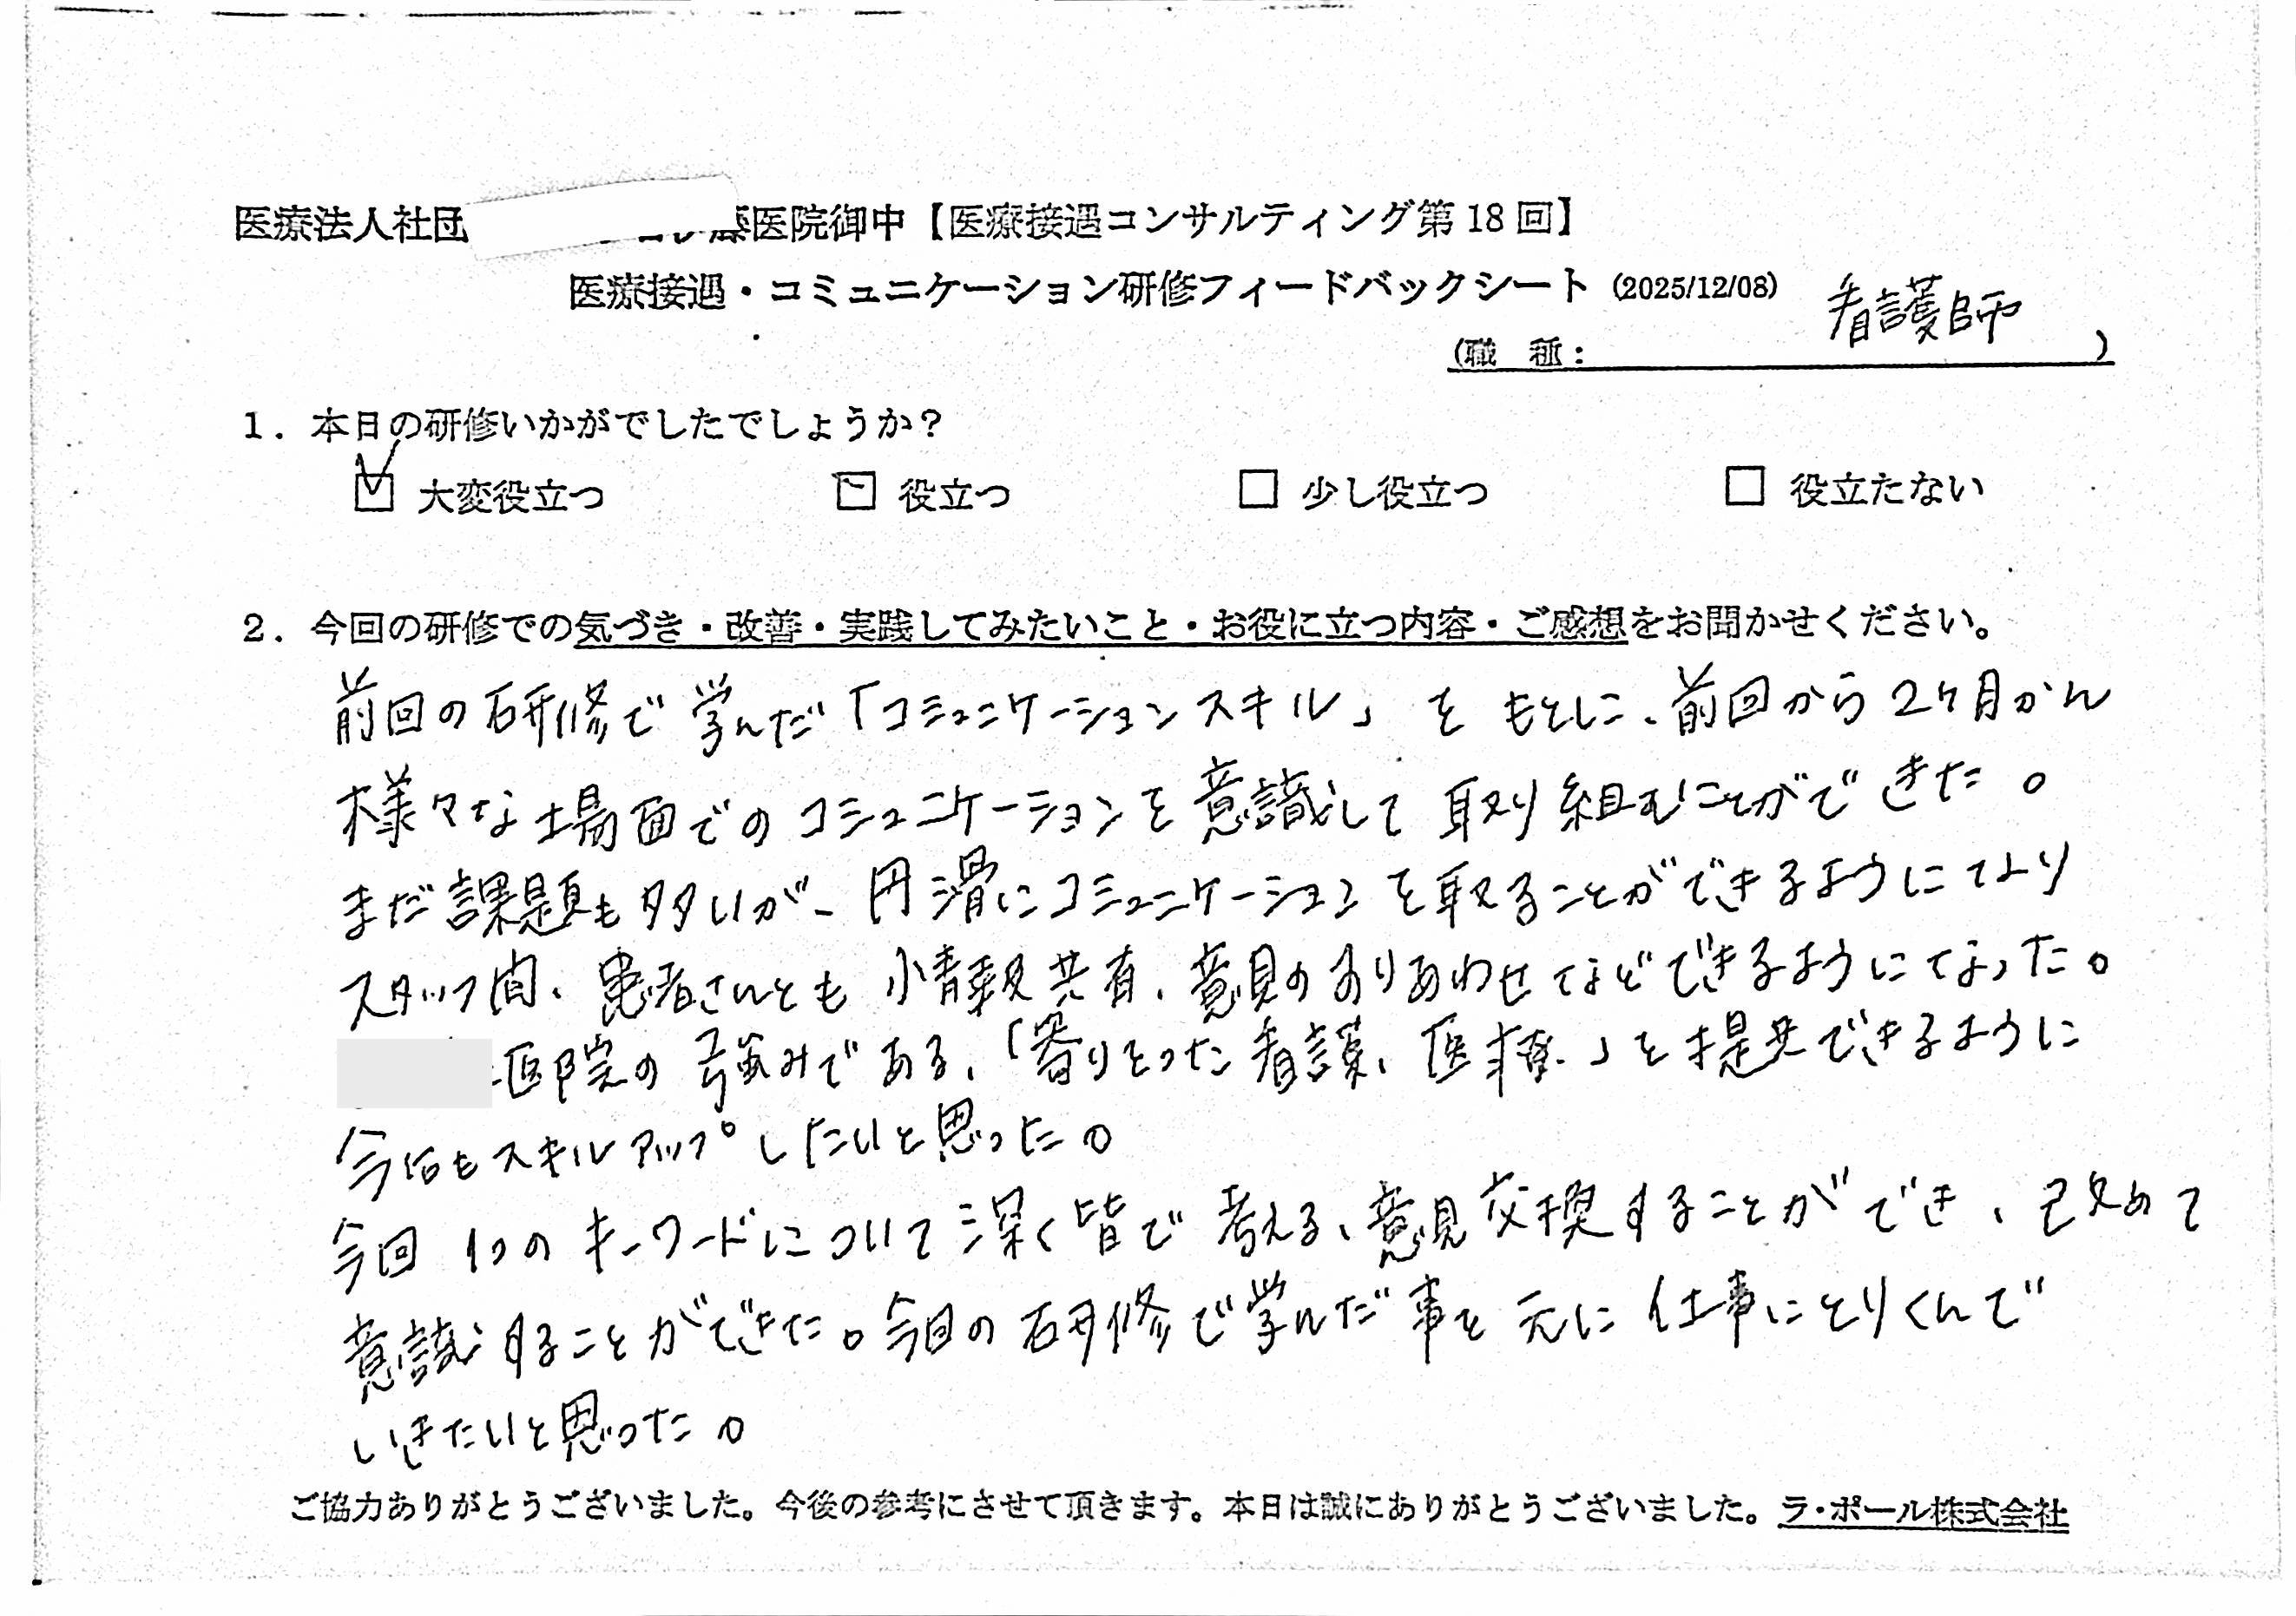 医療法人社団 医院御中【医療接遇コンサルティング第18回】
医療接遇・コミュニケーション研修フィードバックシート (2025/12/08)
(職 種: 看護師 )
1. 本日の研修いかがでしたでしょうか?
☑ 大変役立つ □ 役立つ □ 少し役立つ □ 役立たない
2. 今回の研修での気づき・改善・実践してみたいこと・お役に立つ内容・ご感想をお聞かせください。
前回の研修で学んだ「コミュニケーションスキル」をもとに、前回から2ケ月かん
様々な場面でのコミュニケーションを意識して取り組むことができた。
まだ課題も多いが、円滑にコミュニケーションを取ることができるようになり
スタッフ間、患者さんとも情報共有、意見のすりあわせなどできるようになった。
医院の強みである、「寄りそった看護、医療」を提供できるように
今后もスキルアップしたいと思った。
今回1つのキーワードについて深く皆で考える、意見交換することができ、改めて
意識することができた。今日の研修で学んだ事を元に仕事にとりくんで
いきたいと思った。
ご協力ありがとうございました。今後の参考にさせて頂きます。本日は誠にありがとうございました。ラ・ポール株式会社